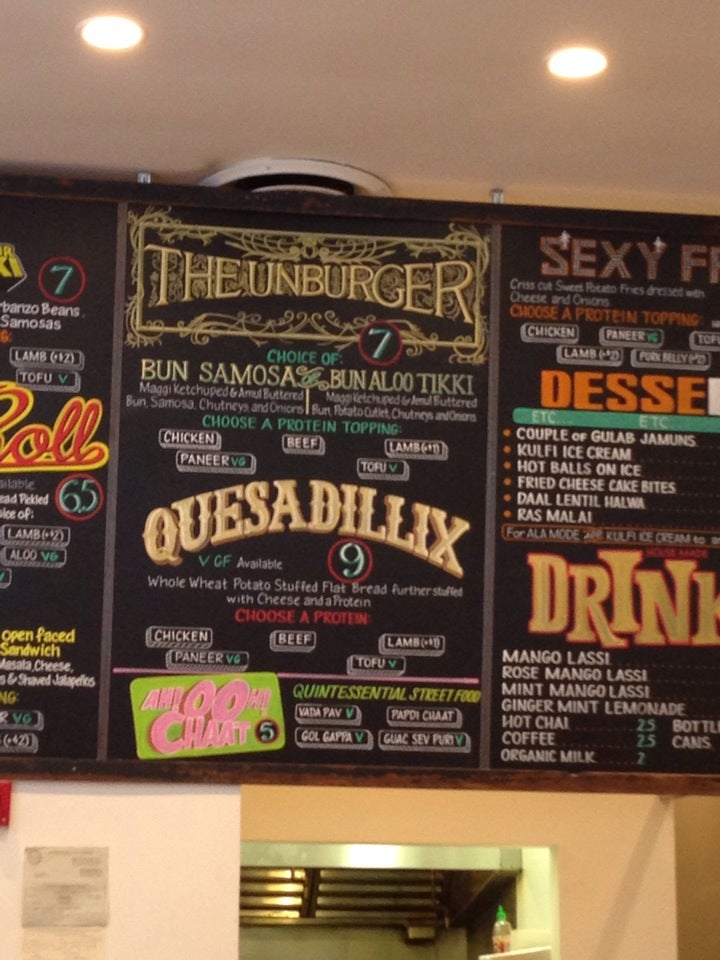 7
rbanzo Beans
Samosas
LAMB (+$2)
TOFU V
Roll
ailable
ead Pickled
6.5
oice of:
LAMB (+$2)
ALOO VG
V
open faced
Sandwich
Masala, Cheese,
s & Shaved Jalapeños
NG:
R VG
(+$2)
THE UNBURGER
7
CHOICE OF:
BUN SAMOSA or BUN ALOO TIKKI
Maggi Ketchuped & Amul Buttered
Bun, Samosa, Chutneys and Onions
Maggi Ketchuped & Amul Buttered
Bun, Potato Cutlet, Chutneys and Onions
CHOOSE A PROTEIN TOPPING:
CHICKEN BEEF LAMB(+$1)
PANEER VG TOFU V
QUESADILLIX
V GF Available 9
Whole Wheat Potato Stuffed Flat Bread further stuffed
with Cheese and a Protein
CHOOSE A PROTEIN:
CHICKEN BEEF LAMB(+$1)
PANEER VG TOFU V
AH! OOH!
CHAAT 5
QUINTESSENTIAL STREET FOOD
VADA PAV V PAPDI CHAAT
GOL GAPPA V GUAC SEV PURI V
SEXY FR
Criss cut Sweet Potato Fries dressed with
Cheese and Onions
CHOOSE A PROTEIN TOPPING:
CHICKEN PANEER VG TOF
LAMB (+$2) PORK BELLY (+$2)
DESSE
ETC... ETC...
• COUPLE of GULAB JAMUNS
• KULFI ICE CREAM
• HOT BALLS ON ICE
• FRIED CHEESE CAKE BITES
• DAAL LENTIL HALWA
• RAS MALAI
For ALA MODE add KULFI ICE CREAM to an
HOUSE MADE
DRINK
MANGO LASSI
ROSE MANGO LASSI
MINT MANGO LASSI
GINGER MINT LEMONADE
HOT CHAI 2.5 BOTTL
COFFEE 2.5 CANS
ORGANIC MILK 2